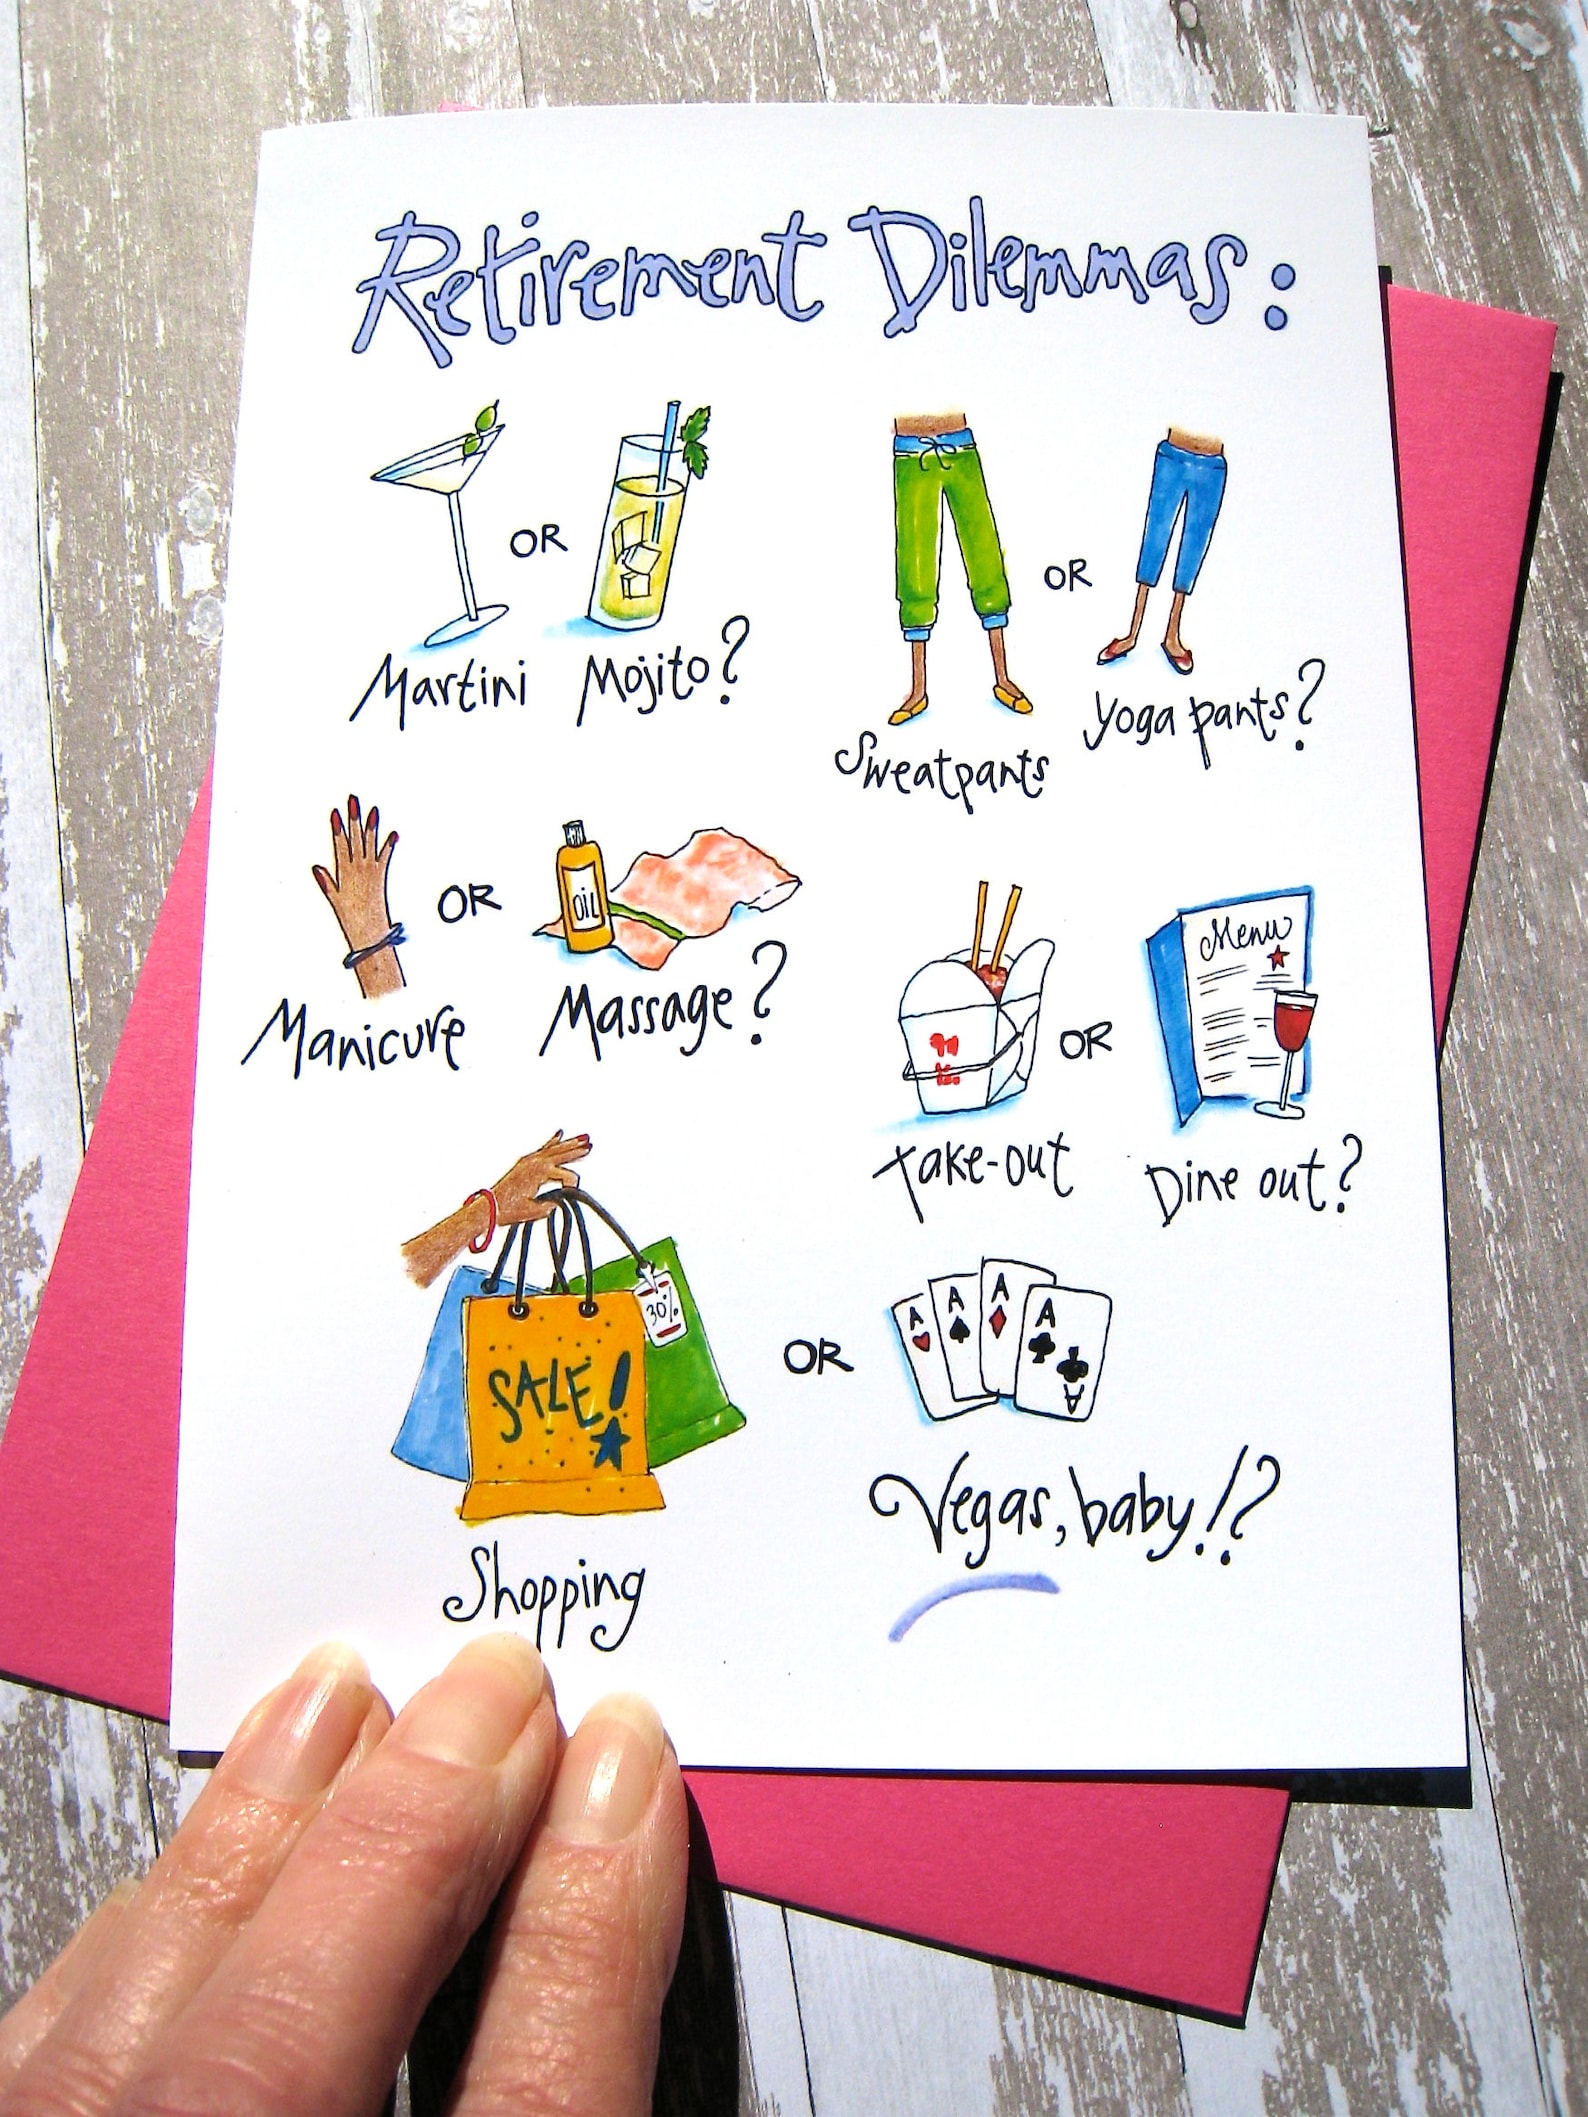 Retirement Dilemmas:
OR
Martini Mojito?
OR
Sweatpants Yoga pants?
OR
OIL
Manicure Massage?
Menu
OR
Take-out Dine out?
30%
SALE!
Shopping
OR
A A A A
A
Vegas, baby!?